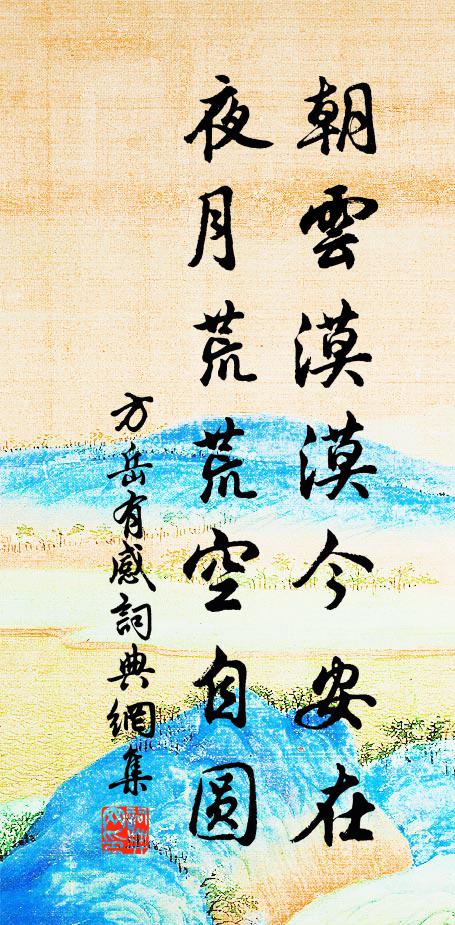 朝雲漠漠今安在
夜月荒荒空自圓
方岳有感詞典網集